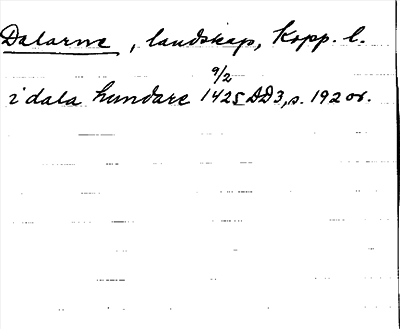 Dalarne, landskap, Kopp. l.
9/2
i dala hundare 1425 DD3, s. 192 or.